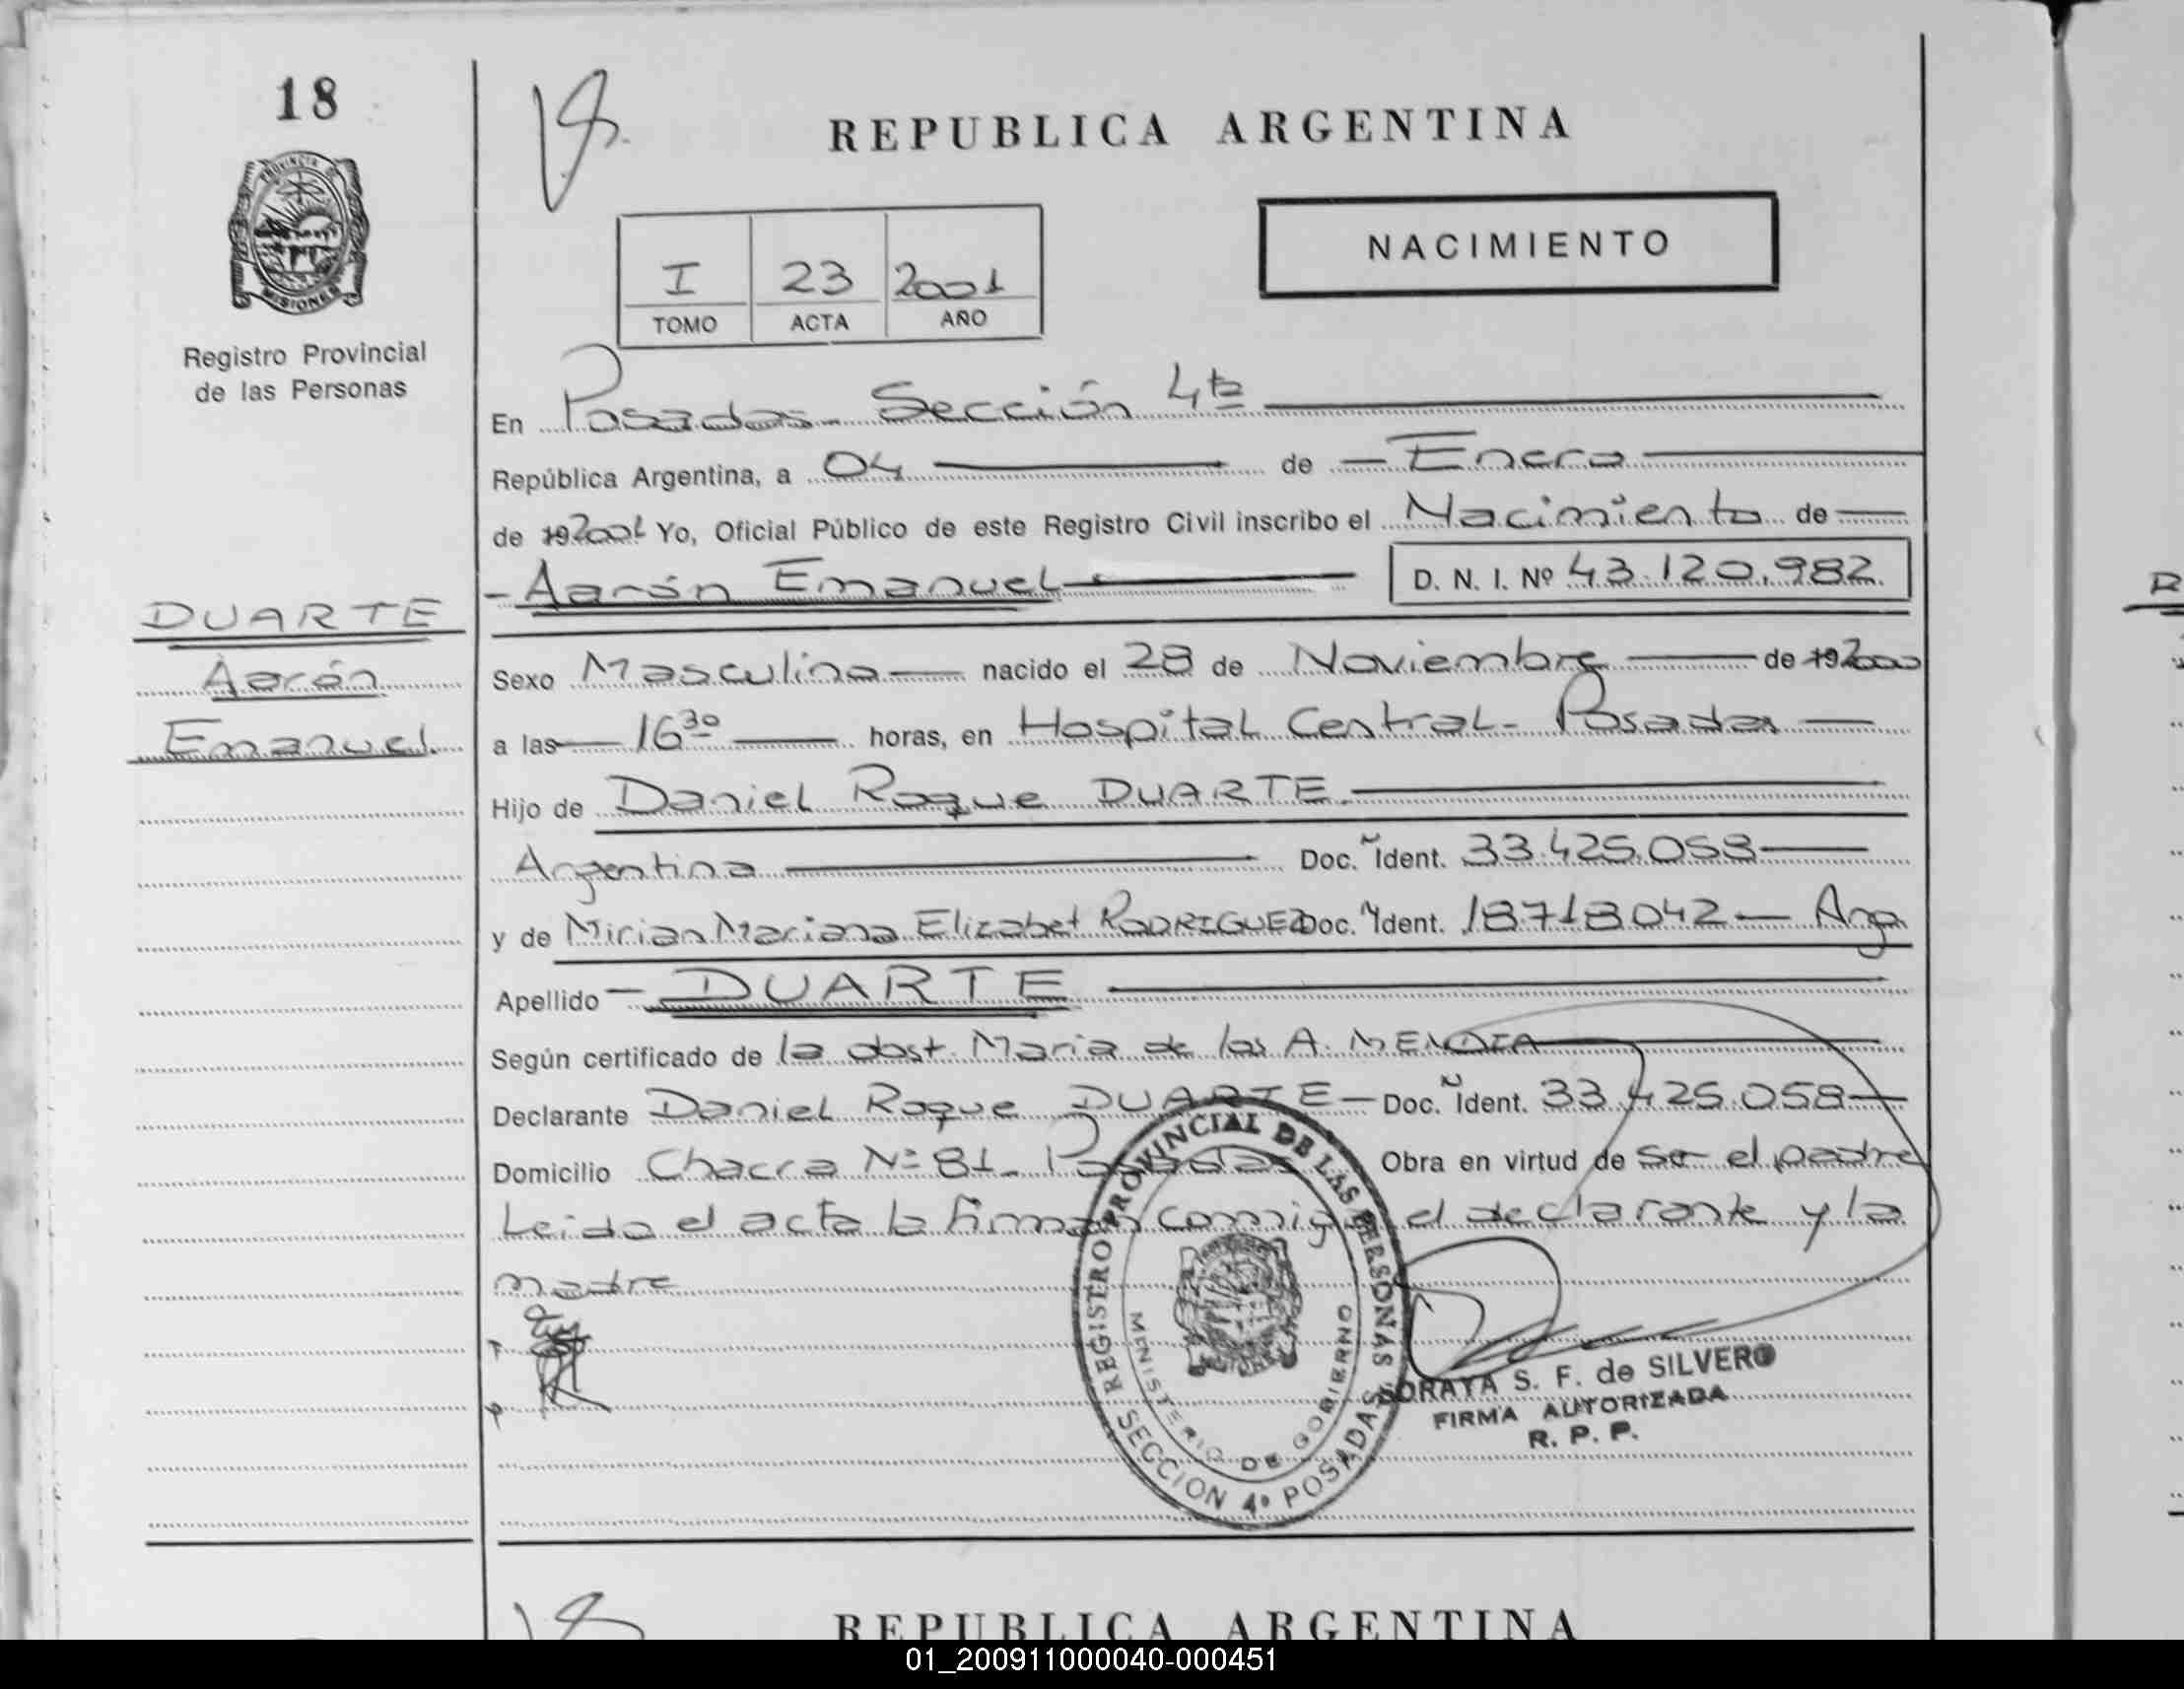 18
PROVINCIA DE
MISIONES
Registro Provincial
de las Personas
DUARTE
Aarón
Emanuel.
REPUBLICA ARGENTINA
NACIMIENTO
I 23 2001
TOMO ACTA AÑO
En Posadas - Sección 4ta
República Argentina, a 04 de - Enero
de 192001 Yo, Oficial Público de este Registro Civil inscribo el Nacimiento de
- Aarón Emanuel D. N. I. Nº 43.120.982.
Sexo Masculino nacido el 28 de Noviembre de 192000
a las 16 30 horas, en Hospital Central - Posadas
Hijo de Daniel Roque DUARTE.
Argentina Doc. Ident. 33.425.058
y de Mirian Mariana Elizabet RODRIGUEZ Doc. Ident. 18718042 - Arg
Apellido - DUARTE
Según certificado de la obst. Maria de los A.
Declarante Daniel Roque DUARTE - Doc. Ident. 33.425.058
Domicilio Chacra Nº 81 - Posadas Obra en virtud de ser el padre
Leida el acta la firman conmigo el declarante y la
madre
REGISTRO PROVINCIAL DE LAS PERSONAS
MINISTERIO DE GOBIERNO
SECCION 4º POSADAS
SORAYA S. F. de SILVERO
FIRMA AUTORIZADA
R. P. P.
REPUBLICA ARGENTINA
01_200911000040-000451